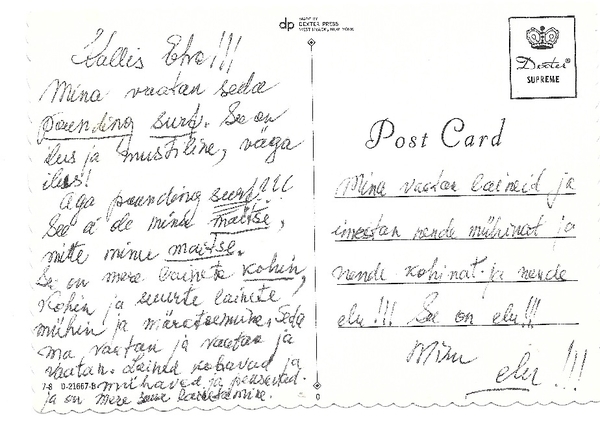 MADE BY
dp DEXTER PRESS
WEST NYACK, NEW YORK
Dexter®
SUPREME
Post Card
Kallis Eho!!!
Mina vaatan seda
pounding surf. See on
ilus ja müstiline, väga
ilus!
Aga pounding surf!!!
See ei ole minu maitse,
mitte minu maitse.
See on mere lainete kohin,
kohin ja suurte lainete
mühin ja möratsemine. Seda
ma vaatan ja vaatan ja
vaatan. Lained kohavad ja
mühavad ja
ja on mere
7-8 D-21667-B
Mina vaatan laineid ja
imestan nende mühinat ja
nende kohinat ja nende
elu!!! See on elu!!!
Minu
elu!!!